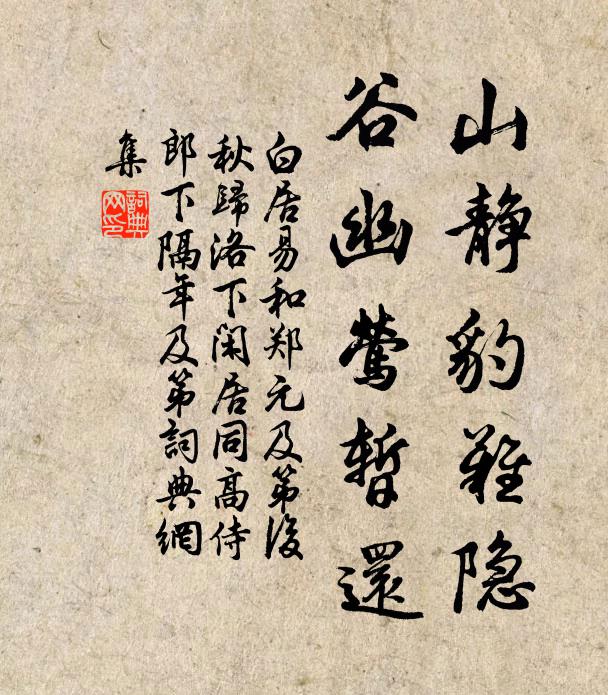 山静豹难隐
谷幽莺暂還
白居易和郑元及第後
秋歸洛下闲居同高侍
郎下隔年及第詞典網
集
詞典
网印